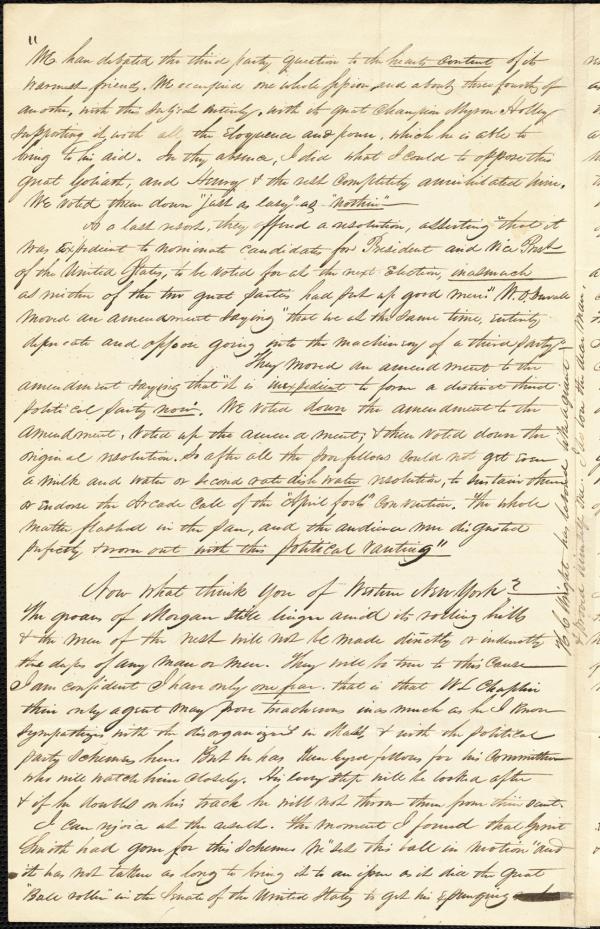 "
We have debated the third party question to the hearts content of its
warmest friends. We occupied one whole session and about three fourths of
another, with this subject entirely, with its great Champion Myron Holley
supporting it with all the Eloquence and power, which he is able to
bring to his aid. In thy absence, I did what I could to oppose this
great Goliath, and Henry & the rest completely annihilated him.
We voted them down "just as easy" as "nothin"
As a last resort, they offered a resolution, asserting "that it
was Expedient to nominate candidates for President and Vice Prest
of the United States, to be voted for at the next Election, inasmuch
as neither of the two great parties had put up good men." W. O. Duvall
moved an amendment saying "that we at the same time, entirely
deprecate and oppose going into the machinery of a third party"
They moved an amendment to the
amendment saying that "it is inexpedient to form a distinct third
political party now. We voted down the amendment to the
amendment, voted up the amendment, & then voted down the
original resolution. So after all the poor fellows could not get even
a milk and water or second rate dish water resolution, to sustain them
or endorse the Arcade call of the "April fools" Convention. The whole
matter flashed in the pan, and the audience were disgusted
perfectly & worn out with this political ranting"
Now what think you of Western New York?
The groans of Morgan still linger amid its rolling hills
& the men of the west will not be made directly or indirectly
the dupes of any man or men. They will be true to this cause
I am confident I have only one fear. that is that W L Chaplin
their only agent may prove treacherous inasmuch as he I know
sympathizes with the disorganizers in Mass. & with the political
party schemes here. But he has Keen Eyed fellows for his Committee
who will watch him closely. His every step will be looked after
& if he doubles on his track he will not throw them from their scent.
I can rejoice at the result. The moment I found that Gerrit
Smith had gone for this scheme We "set this ball in motion" and
it has not taken as long to bring it to an issue as it did the Great
"Ball roller" in the Senate of the United States to get his Expunging
H C Wright has labored like a giant
& proved himself one. I do love the dear man.